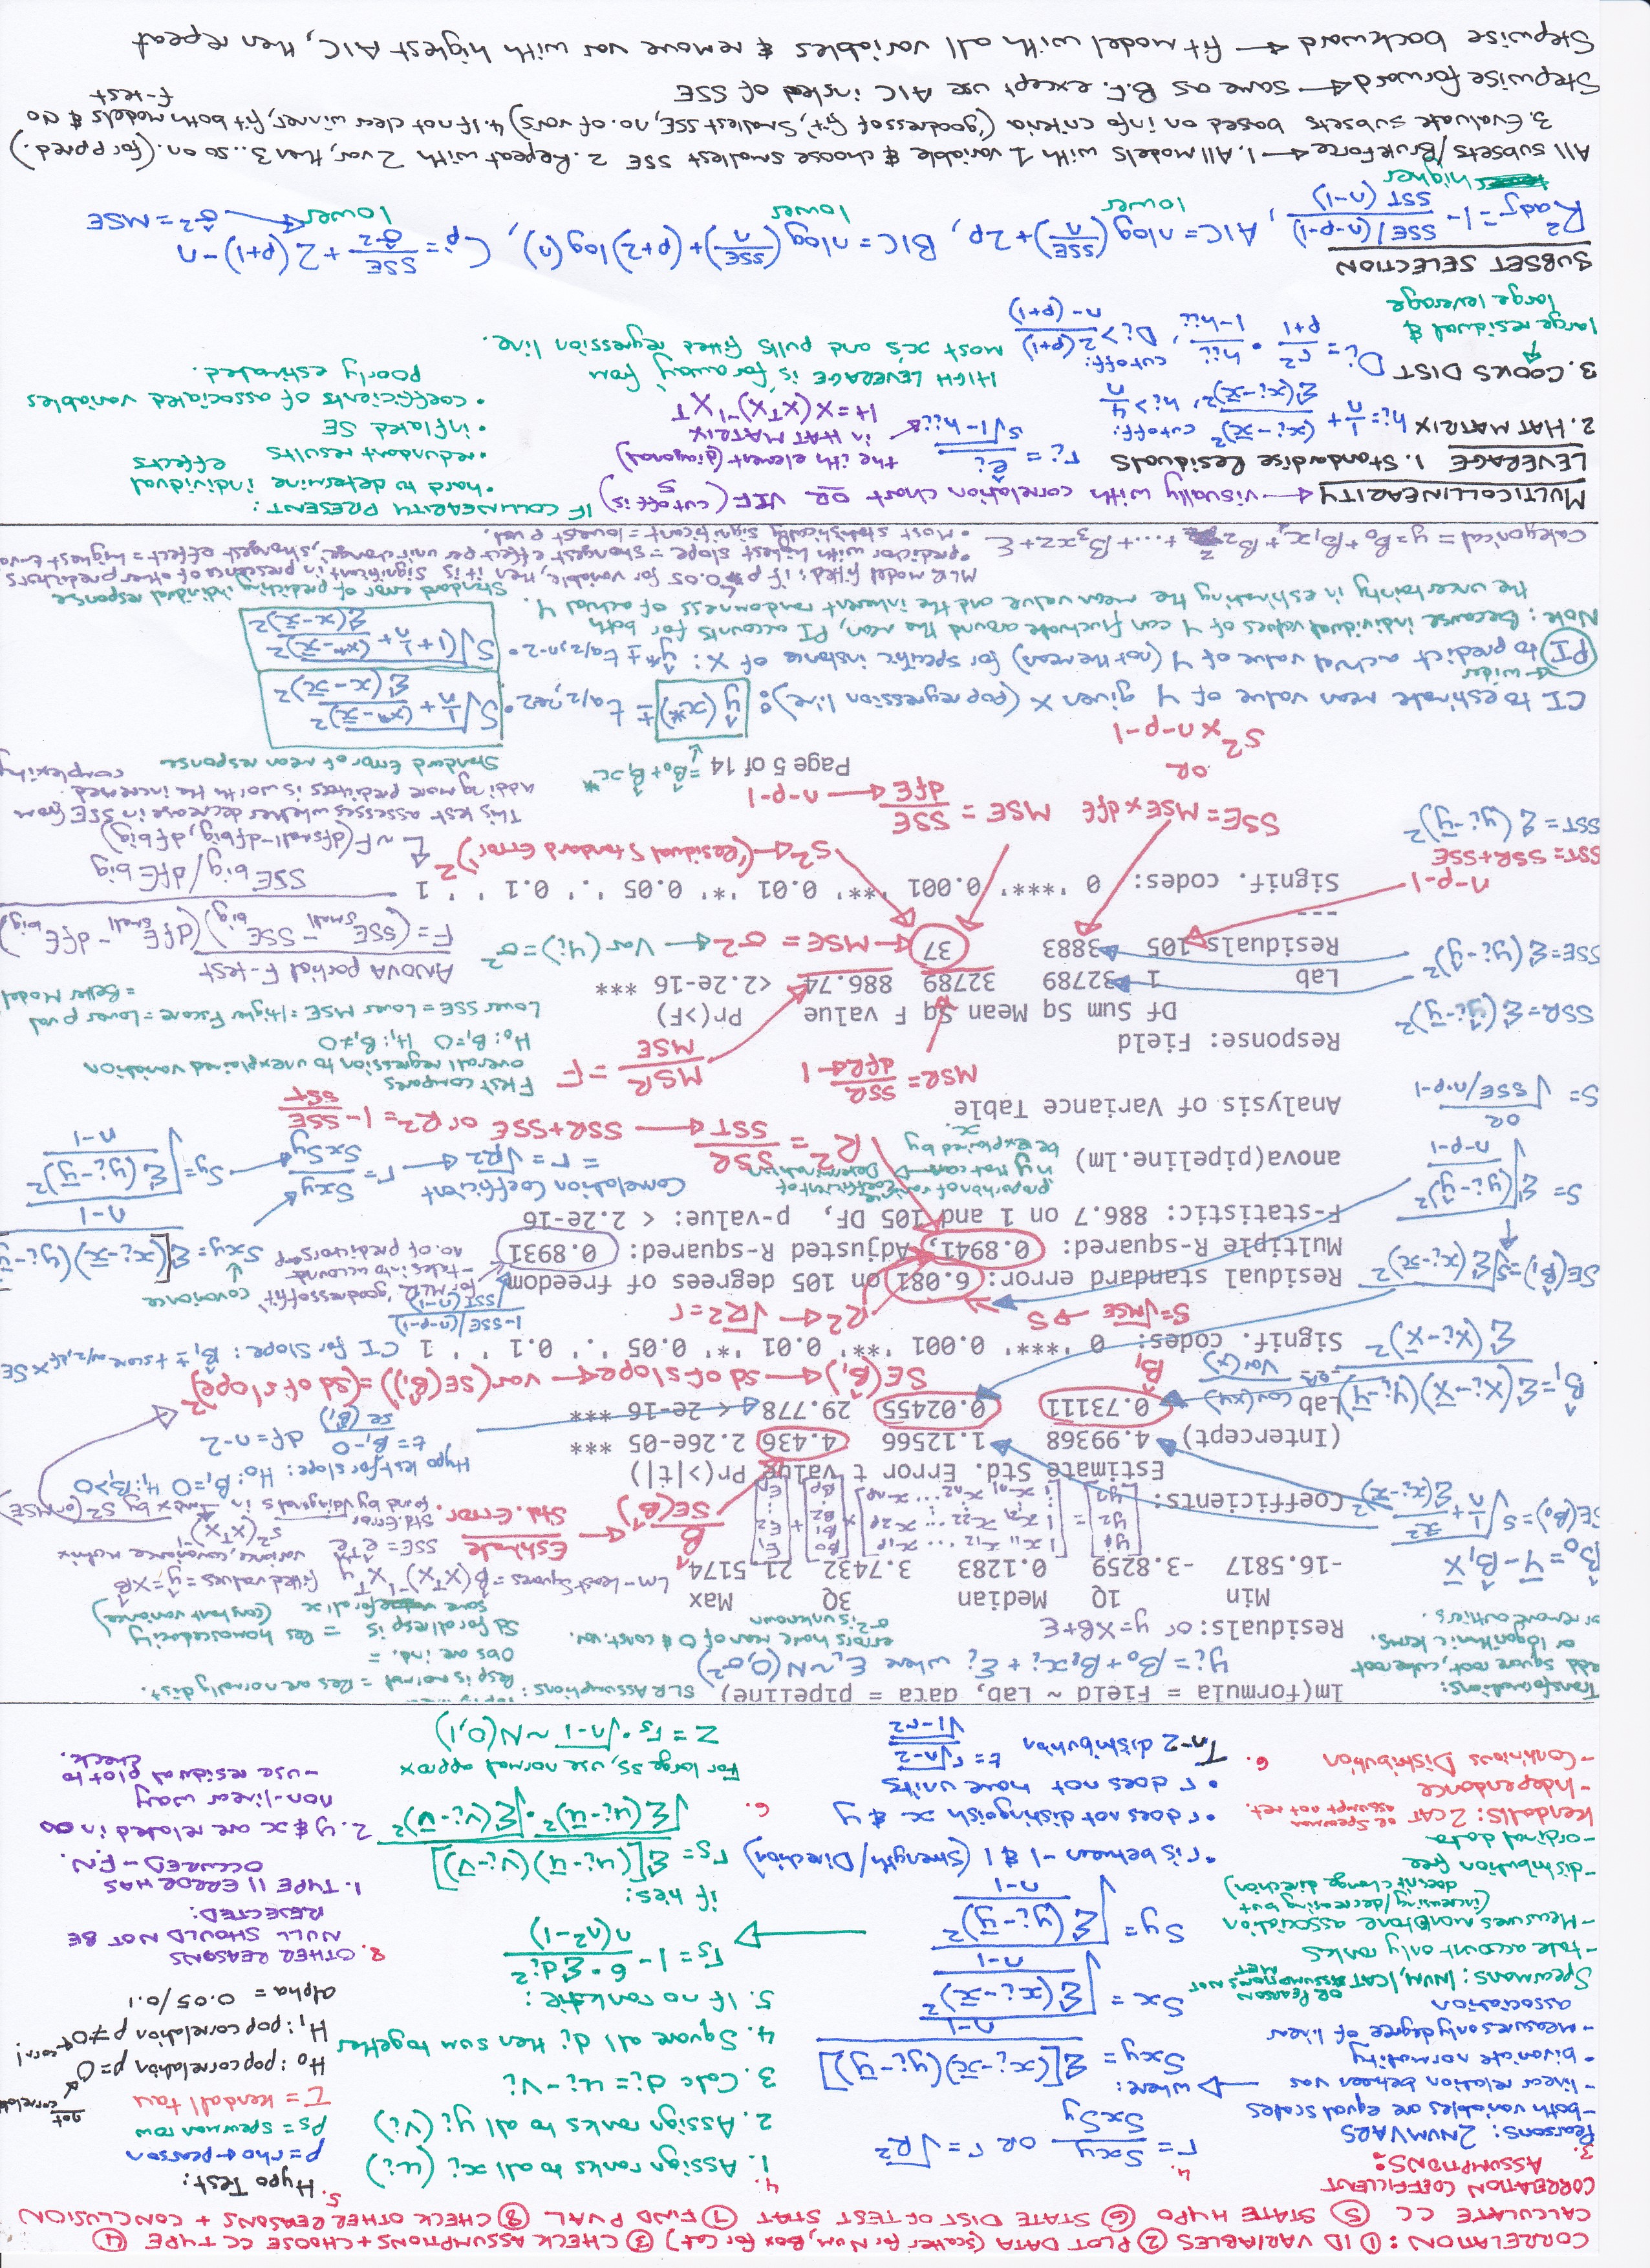 CORRELATION: ① ID VARIABLES ② PLOT DATA (Scatter for Num, Box for Cat) ③ CHECK ASSUMPTIONS + CHOOSE CC TYPE ④
CALCULATE CC ⑤ STATE HYPO ⑥ STATE DIST OF TEST STAT ⑦ FIND P VAL ⑧ CHECK OTHER REASONS + CONCLUSION
CORRELATION COEFFICIENT
ASSUMPTIONS:
3.
Pearsons: 2 NUM VARS
- both variables are equal scales
- linear relation between vas
• bivariate normality
- Measures only degree of linear
association
Spearmans: 1 NUM, 1 CAT OR PEARSON ASSUMPTIONS NOT MET
- take account only ranks
- Measures monotone association
(increasing/decreasing but
doesn't change direction)
- distribution free
- ordinal data
Kendalls: 2 CAT or Spearman assumpt not met.
- Independence
- Continious Distribution
4.
r = Sxy / SxSy OR r = √R²
where:
Sxy = Σ[(xi-x̄)(yi-ȳ)] / n-1
Sx = √Σ(xi-x̄)² / n-1
Sy = √Σ(yi-ȳ)² / n-1
• r is between -1 & 1 (Strength/Direction)
• r does not distinguish x & y
• r does not have units
6. Tn-2 distribution t = r√n-2 / √1-r²
4.
1. Assign ranks to all xi (ui)
2. Assign ranks to all yi (vi)
3. Calc di = ui - vi
4. Square all di then sum together
5. If no rank tie:
rs = 1 - 6 · Σdi² / n(n²-1)
if ties:
rs = Σ[(ui-ū)(vi-v̄)] / √Σ(ui-ū)² · √Σ(vi-v̄)²
6.
For large ss, use normal approx
Z = rs · √n-1 ~ N(0,1)
5. Hypo Test:
ρ = rho ← pearson
ρs = spearman row
τ = kendall tau
not correlated
H0: pop correlation ρ = 0
H1: pop correlation ρ ≠ 0 ← corr!
alpha = 0.05/0.1
8. OTHER REASONS
NULL SHOULD NOT BE
REJECTED:
1. TYPE II ERROR HAS
OCCURED - F.N.
2. y & x are related in a
non-linear way
- use residual plot to
check.
Transformations:
add square root, cube root
or logarithmic terms.
or remove outliers.
lm(formula = Field ~ Lab, data = pipeline)
yi = β0 + β1xi + εi where εi ~ N(0,σ²)
errors have mean of 0 & const. var.
σ² is unknown
SLR Assumptions:
Resp is normal = Res are normally dist.
Obs are ind. =
Sd for all resp is same for all x = Res homoscedacity
(constant variance)
Residuals: or y = Xβ + ε
Min 1Q Median 3Q Max
-16.5817 -3.8259 0.1283 3.7432 21.5174
Lm - Least Squares = β̂ (XᵀX)⁻¹Xᵀy fitted values = ŷ = Xβ̂
SSE = êᵀê variance, covariance matrix
s²(XᵀX)⁻¹
β̂ / SE(β̂) ← Estimate / Std. Error.
Std. Error found by √diagonals in max by S² (or MSE)
β̂0 = Ȳ - β̂1X̄
SE(β̂0) = s√1/n + x̄² / Σ(xi-x̄)²
Coefficients:
Estimate Std. Error t value Pr(>|t|)
(Intercept) 4.99368 1.12566 4.436 2.26e-05 ***
Lab 0.73111 0.02455 29.778 < 2e-16 ***
Hypo test for slope: H0: β1=0 H1: β1>0
t = β1-0 / se(β̂1) df = n-2
β̂1 = Σ(xi-x̄)(yi-ȳ) / Σ(xi-x̄)² or Cov(xy) / Var(x)
β̂1
SE(β̂1) ← sd of slope ← var(SE(β̂1)) = (sd of slope)²
Signif. codes: 0 '***' 0.001 '**' 0.01 '*' 0.05 '.' 0.1 ' ' 1
CI for Slope: β̂1 ± t score α/2, df × SE
S = √MSE → S
R² ← √R² = r
1-SSE/(n-p-1) / SST(n-1)
for MLR 'goodness of fit'
- takes into account
no. of predictors
SE(β̂1) = s / √Σ(xi-x̄)²
Residual standard error: 6.081 on 105 degrees of freedom
Multiple R-squared: 0.8941, Adjusted R-squared: 0.8931
F-statistic: 886.7 on 1 and 105 DF, p-value: < 2.2e-16
covariance
Sxy = Σ[(xi-x̄)(yi-ȳ / n-1
S = √Σ(yi-ŷ)² / n-p-1
OR
S = √SSE/n-p-1
proportion of variance
in y that can
be explained by
x.
Coefficient of
Determination
Correlation Coefficient
= r = √R² ← r = Sxy / SxSy ← Sy = √Σ(yi-ȳ)² / n-1
anova(pipeline.lm)
R² = SSR / SST ← SSR+SSE or R² = 1 - SSE / SST
Analysis of Variance Table
MSR = SSR / dfR ← 1
MSR / MSE = F
F test compares
overall regression to unexplained variation
H0: β1=0 H1: β1≠0
Lower SSE = Lower MSE = Higher Fscore = Lower p val
= Better Model
Response: Field
Df Sum Sq Mean Sq F value Pr(>F)
Lab 1 32789 32789 886.74 <2.2e-16 ***
Residuals 105 3883 37
---
SSR = Σ(ŷi-ȳ)²
SSE = Σ(yi-ŷ)²
← MSE = σ² ← Var(yi) = σ²
ANOVA partial F-test
F = (SSEsmall - SSEbig)(dfEsmall - dfEbig) / SSEbig/dfEbig
~ F(dfsmall-dfbig, dfbig)
This test assesses whether decrease in SSE from
adding more predictors is worth the increased
complexity
n-p-1
Signif. codes: 0 '***' 0.001 '**' 0.01 '*' 0.05 '.' 0.1 ' ' 1
SST = SSR+SSE
SST = Σ(yi-ȳ)²
s² ← ('Residual Standard Error')²
SSE = MSE × dfE MSE = SSE / dfE ← n-p-1
OR
s² × n-p-1
Page 5 of 14
= β̂0 + β̂1x*
Standard Error of mean response
CI to estimate mean value of Y given X (pop regression line): ŷ(x*) ± tα/2, n-2 · S√1/n + (x*-x̄)² / Σ(x-x̄)²
← wider
PI to predict actual value of Y (not the mean) for specific instance of X: ŷ* ± tα/2, n-2 · S√(1 + 1/n + (x*-x̄)² / Σ(x-x̄)²
Note: Because individual values of Y can fluctuate around the mean, PI accounts for both
the uncertainty in estimating the mean value and the inherent randomness of actual Y.
Standard error of predicting individual response
MLR Model fitted: if p < 0.05 for variable, then it is significant in presence of other predictors
• predictor with highest slope = strongest effect per unit change, strongest effect = highest t-va
• Most statistically significant = lowest p val.
Categorical = y = β0 + β1x1 + β2z + ... + β3xz + ε
MULTICOLLINEARITY ← visually with correlation chart OR VIF (cutoff is 5)
IF COLLINEARITY PRESENT:
• hard to determine individual
effects
• redundant results
• inflated SE
• coefficients of associated variables
poorly estimated.
LEVERAGE 1. Standardise Residuals ri = êi / s√1-hii
the ith element (diagonal)
in HAT MATRIX
H = X(XᵀX)⁻¹Xᵀ
2. HAT MATRIX hi = 1/n + (xi-x̄)² / Σ(xi-x̄)², cutoff: hi > 4/n
3. COOKS DIST Di = r² / p+1 · hii / 1-hii, cutoff: Di > 2(p+1) / n-(p+1)
large residual &
large leverage
HIGH LEVERAGE is 'far away' from
most x's and pulls fitted regression line.
SUBSET SELECTION
R²adj = 1 - SSE/(n-p-1) / SST(n-1), AIC = nlog(SSE/n) + 2p, BIC = nlog(SSE/n) + (p+2)log(n), Cp = SSE / σ̂² + 2(p+1) - n
higher lower lower lower ← σ̂² = MSE
All subsets/Brute Force ← 1. All Models with 1 variable & choose smallest SSE 2. Repeat with 2 var, then 3...so on. (for p pred.)
3. Evaluate subsets based on info criteria ('goodness of fit', Smallest SSE, no. of vars) 4. If not clear winner, fit both models & do
f-test
Stepwise forward ← same as B.F. except use AIC insted of SSE
Stepwise backward ← fit model with all variables & remove var with highest AIC, then repeat